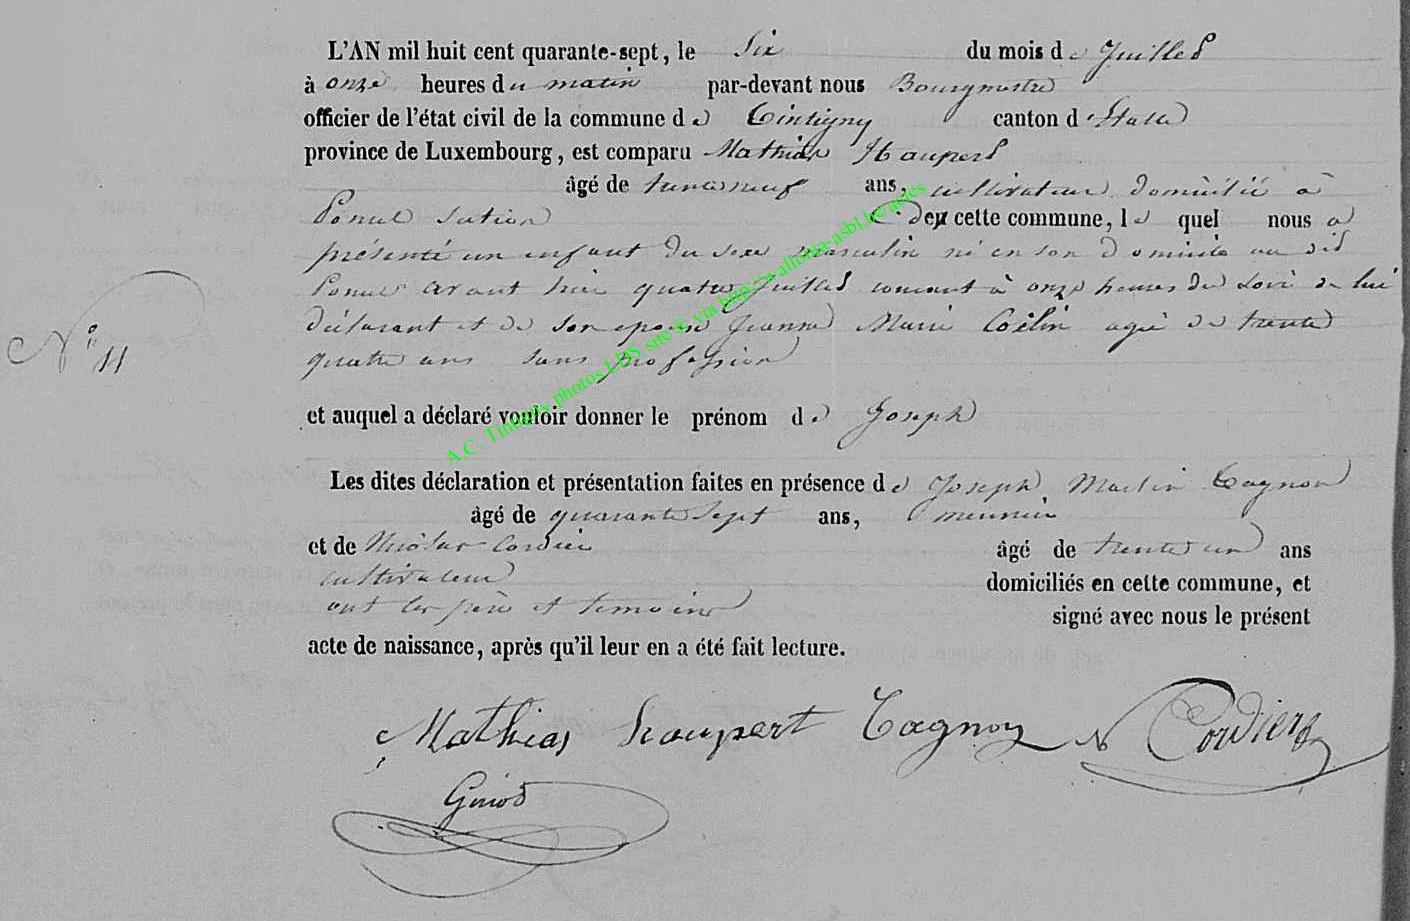 L'AN mil huit cent quarante-sept, le Six du mois de Juillet
à onze heures du matin par-devant nous Bourgmestre
officier de l'état civil de la commune de Tintigny canton d'Etalle
province de Luxembourg, est comparu Mathias Haupert
âgé de trente neuf ans, cultivateur domicilié à
de cette commune, le quel nous a
présenté un enfant du sexe masculin né en son domicile au dit
avant hier quatre Juillet courant à onze heures du soir de lui
déclarant et de son epouse Jeanne Marie Colin agée de trente
quatre ans sans profession
N° 11
et auquel a déclaré vouloir donner le prénom de Joseph
Les dites déclaration et présentation faites en présence de Joseph Martin Tagnon
âgé de quarante Sept ans, meunier
et de Nicolas Cordier âgé de trente un ans
cultivateur domiciliés en cette commune, et
ont les père et temoins signé avec nous le présent
acte de naissance, après qu'il leur en a été fait lecture.
Mathias haupert Tagnon N Cordier
A.C. Tintigny photos LDS site © via http://wallonia-asbl.be/actes